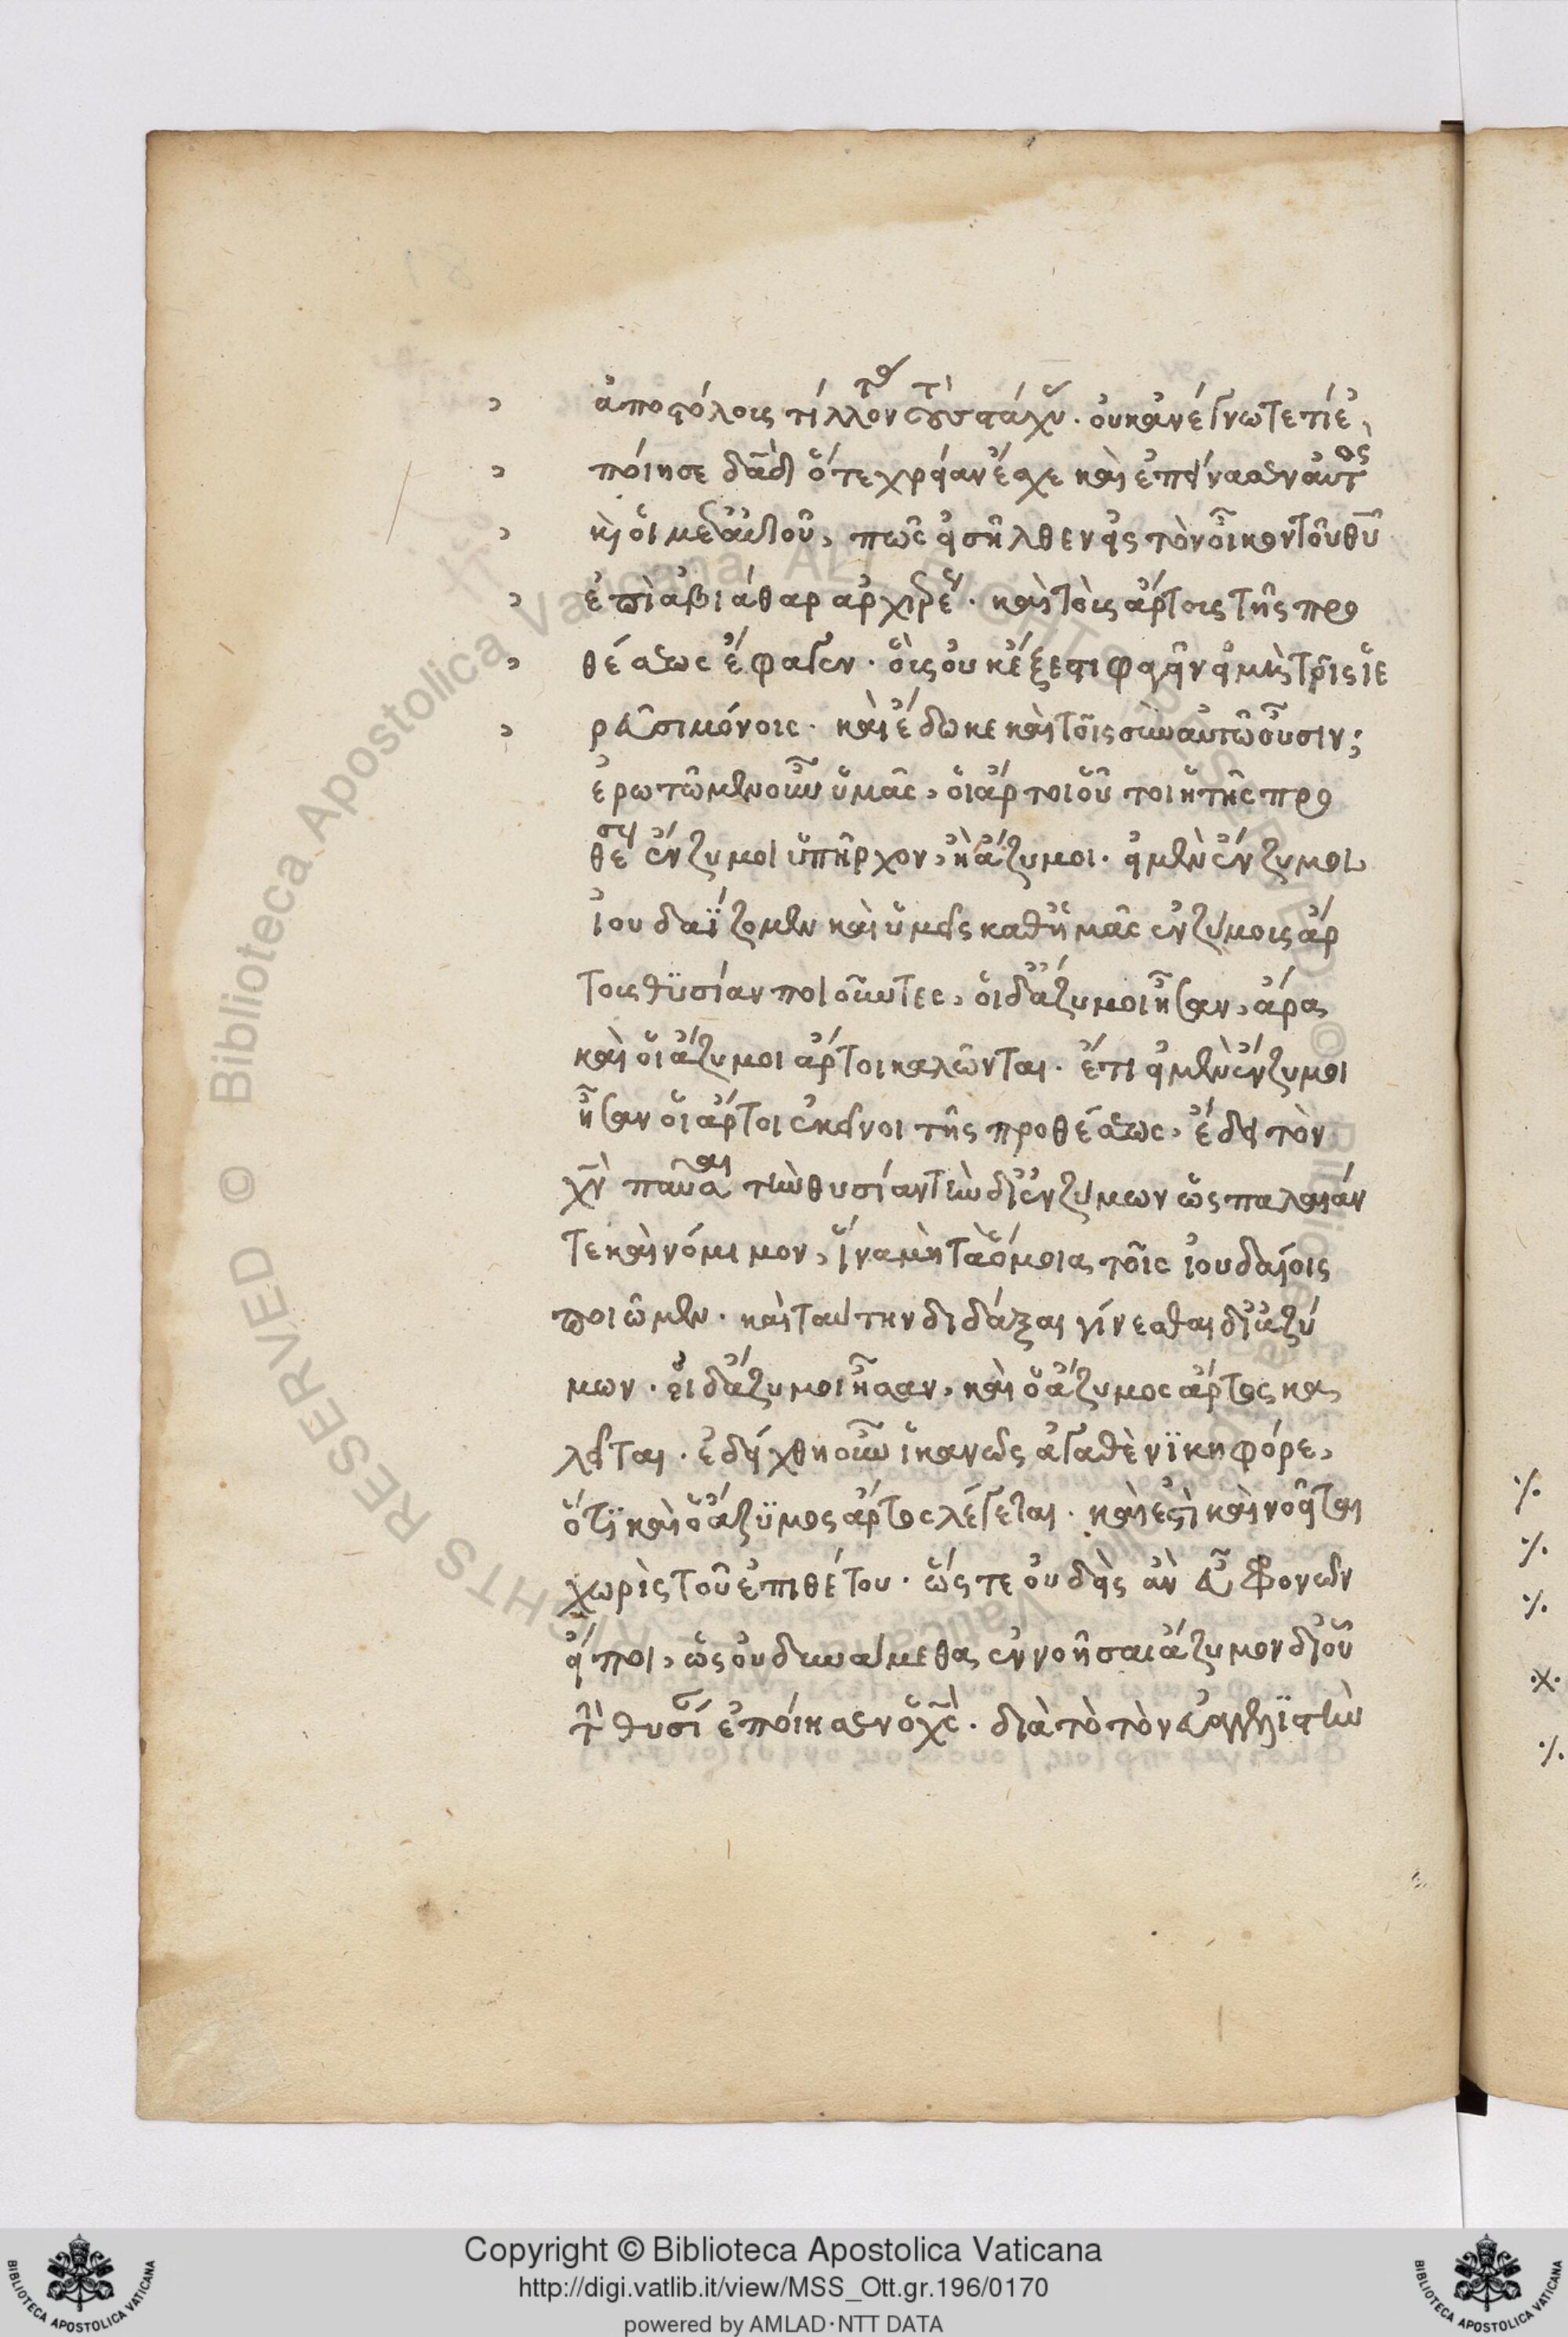 ἀποστόλοις τίλλουσι τοὺς στάχυας· οὐκ ἀνέγνωτε τί ἐ
ποίησε δᾱδ ὅτε χρείαν ἔσχε καὶ ἐπείνασεν αὐτὸς
κ οἱ μετ' αὐτοῦ, πῶς εἰσῆλθεν εἰς τὸν οἶκον τοῦ θυ
ἐπὶ ἀβιάθαρ ἀρχιερέως· καὶ τοὺς ἄρτοις τῆς προ
θέσεως ἔφαγεν· οἷς οὐκ ἔξεστι φαγεῖν εἰ μὴ τοῖς ἱε
ρεῦσι μόνοις· καὶ ἔδωκε καὶ τοῖς σὺν αὐτῶ οὖσιν;
ἐρωτῶμεν οὖν ὑμᾶς, οἱ ἄρτοι οὗτοι οἱ τῆς προ
θέσεως ἔνζυμοι ὑπῆρχον, ἢ ἄζυμοι· εἰ μὲν ἔνζυμοι
ἰουδαΐζομεν καὶ ὑμεῖς καθ' ἡμᾶς ἐνζύμοις ἄρ
τοις θϋσίαν ποιοῦντες, εἰ δ' ἄζυμοι ἦσαν, ἄρα
καὶ οἱ ἄζυμοι ἄρτοι καλῶνται· ἔτι εἰ μὲν ἔνζυμοι
ἦσαν οἱ ἄρτοι ἐκεῖνοι τῆς προθέσεως, ἔδει τὸν
χν παῦσαι τὴν θυσίαν τὴν δι' ἐνζύμων ὡς παλαιάν
τε καὶ νόμιμον, ἵνα μὴ τὰ ὅμοια τοῖς ἰουδαίοις
ποιῶμεν· καὶ ταύτην διδάξαι γίνεσθαι δι' ἀζύ
μων· εἰ δ' ἄζυμοι ἦσαν, καὶ ὁ ἄζυμος ἄρτος κα
λεῖται· ἐδείχθη οὖν ἱκανῶς ἀγαθὲ νϊκηφόρε,
ὅτϊ καὶ ὁ ἄζϋμος ἄρτος λέγεται· καὶ ἐστὶ καὶ νοεῖται
χωρὶς τοῦ ἐπιθέτου· ὥστε οὐδεὶς ἂν εὖ φρονῶν
εἴποι, ὡς οὐ δυνάμεθα ἐννοῆσαι ἄζυμον δι' οὗ
τὴν θυσίαν ἐποίησεν ὁ χς· διὰ τὸ τὸν εὐαγγελϊστὴν
Copyright © Biblioteca Apostolica Vaticana
http://digi.vatlib.it/view/MSS_Ott.gr.196/0170
powered by AMLAD·NTT DATA